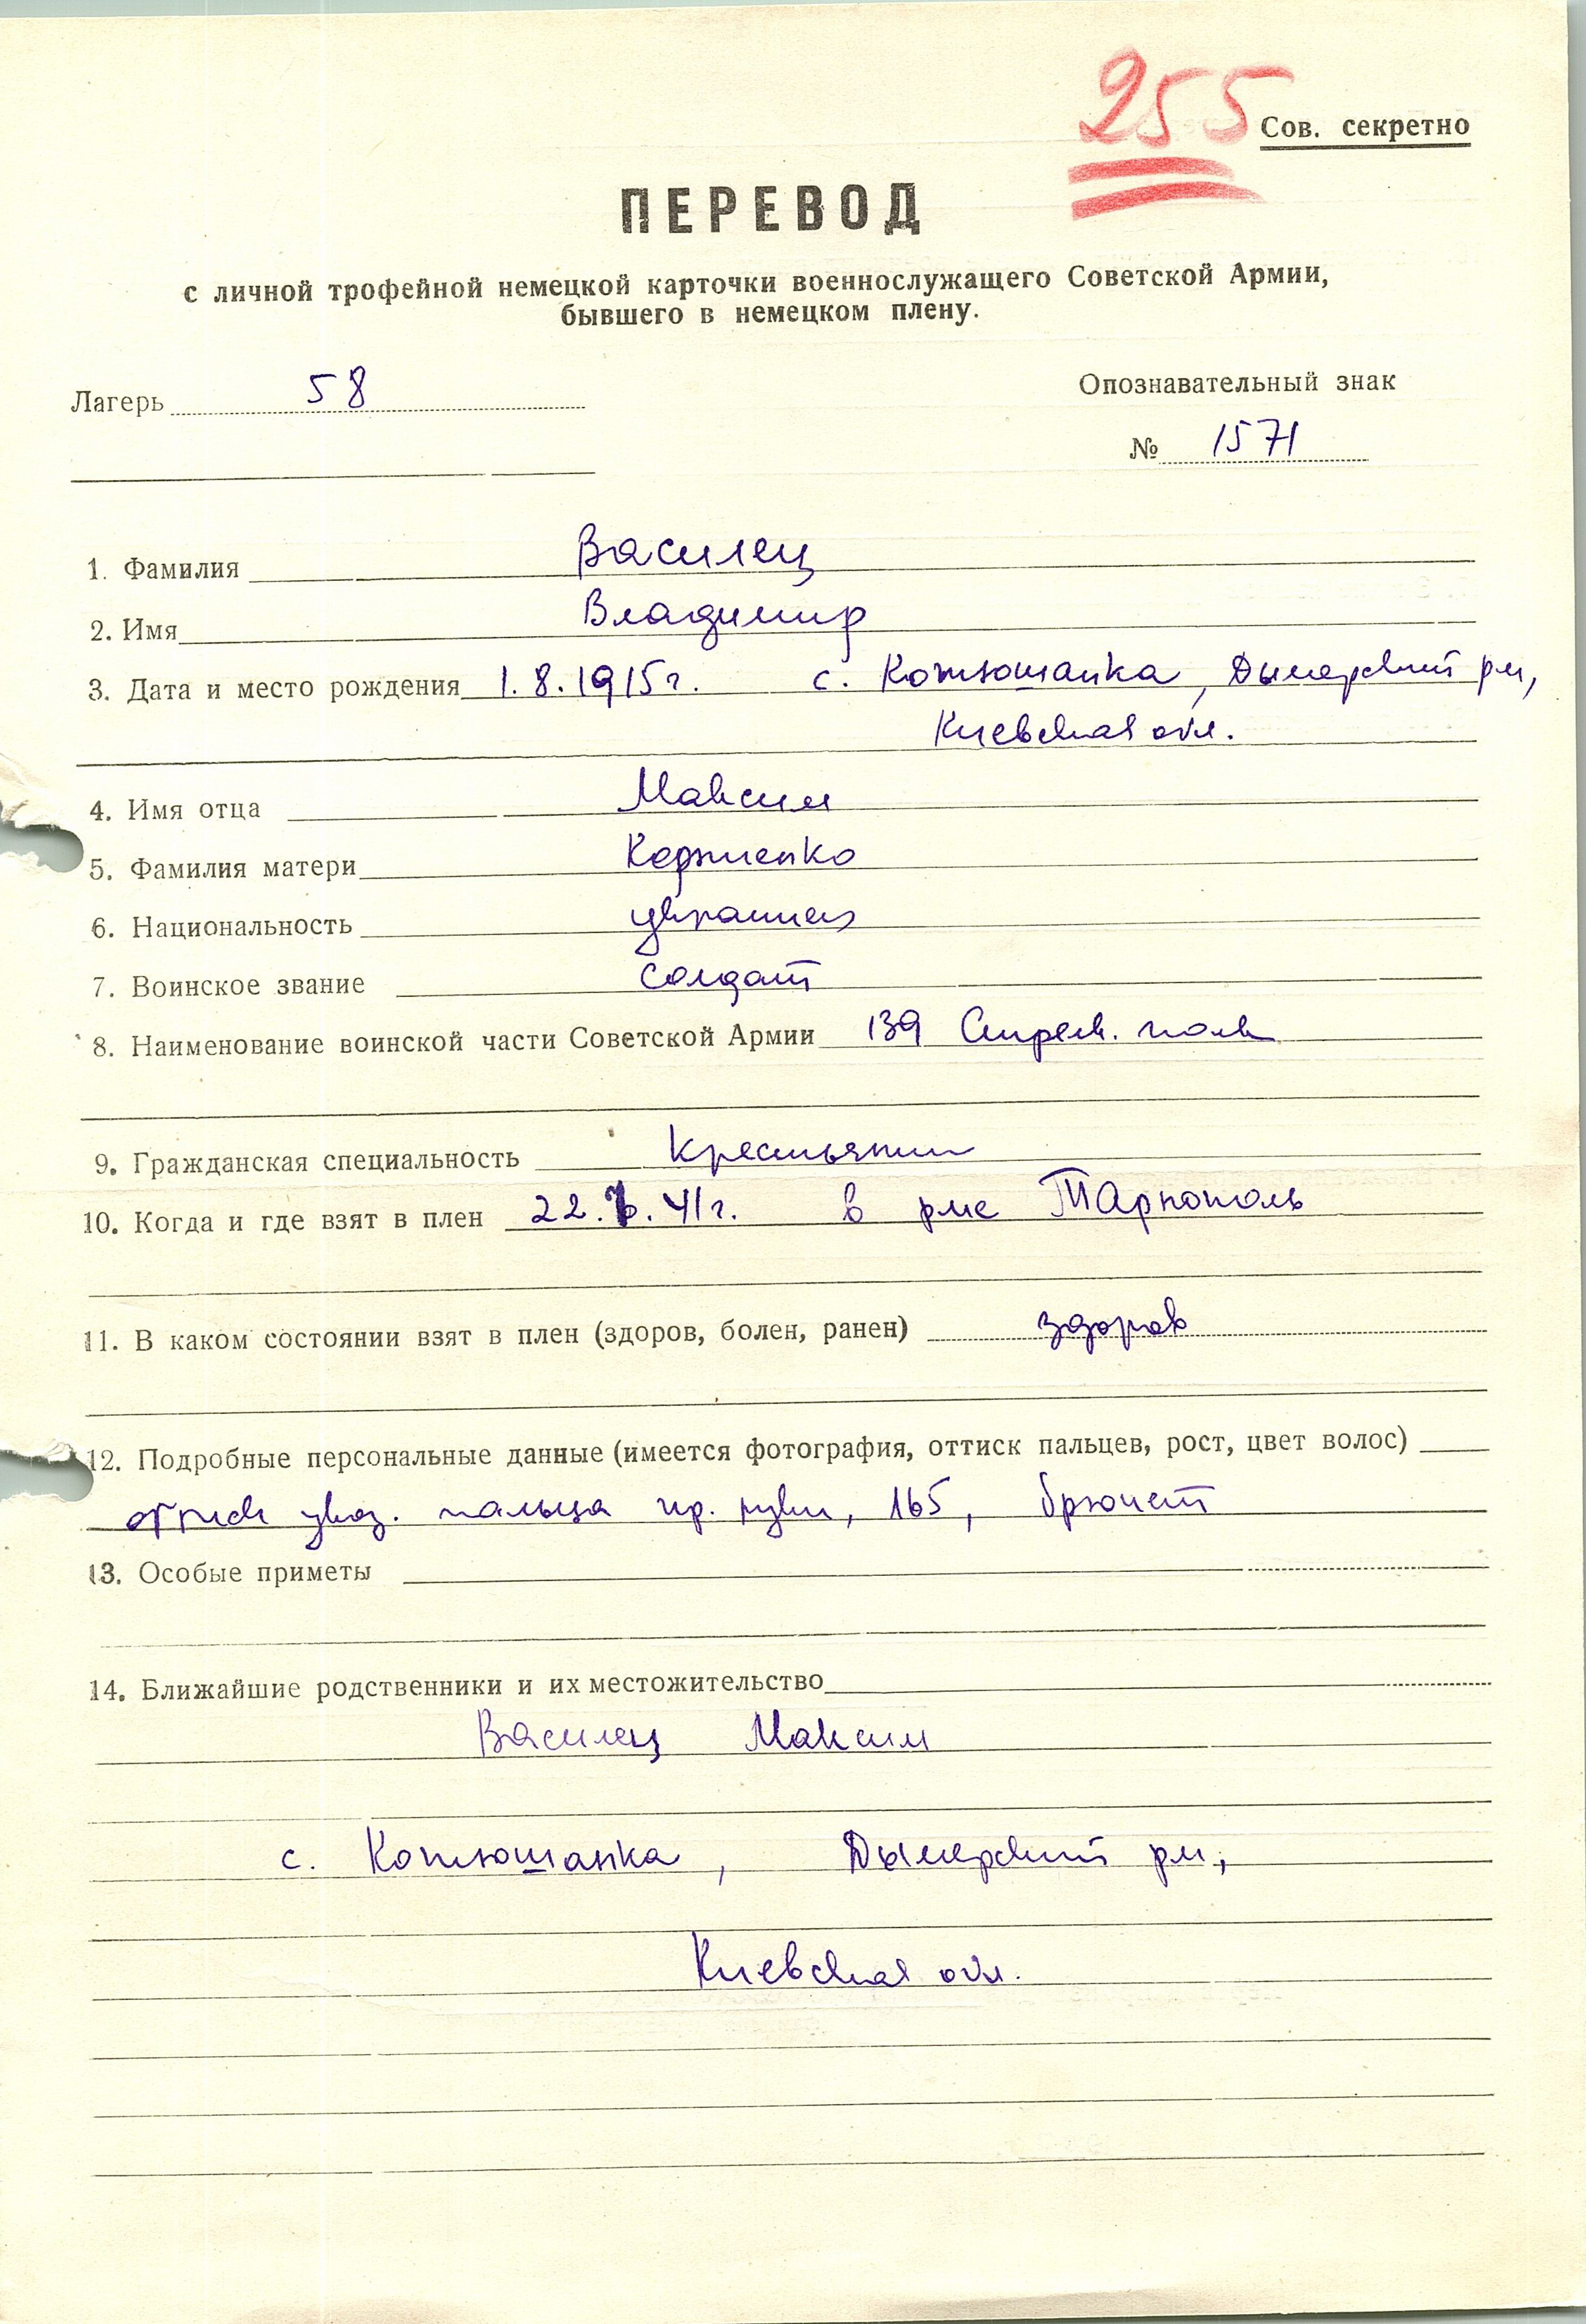 255
Сов. секретно
ПЕРЕВОД
с личной трофейной немецкой карточки военнослужащего Советской Армии,
бывшего в немецком плену.
Лагерь 58
Опознавательный знак
№ 1571
1. Фамилия Василец
2. Имя Владимир
3. Дата и место рождения 1.8.1915г. с. Котюшанка, Дымерский рн,
Киевская обл.
4. Имя отца Максим
5. Фамилия матери Корниенко
6. Национальность украинец
7. Воинское звание солдат
8. Наименование воинской части Советской Армии 139 Стрелк. полк
9. Гражданская специальность Крестьянин
10. Когда и где взят в плен 22. .41г. в рне Тарнополь
11. В каком состоянии взят в плен (здоров, болен, ранен) здоров
12. Подробные персональные данные (имеется фотография, оттиск пальцев, рост, цвет волос)
оттиск указ. пальца пр. руки, 165, брюнет
13. Особые приметы
14. Ближайшие родственники и их местожительство
Василец Максим
с. Котюшанка, Дымерский рн,
Киевская обл.